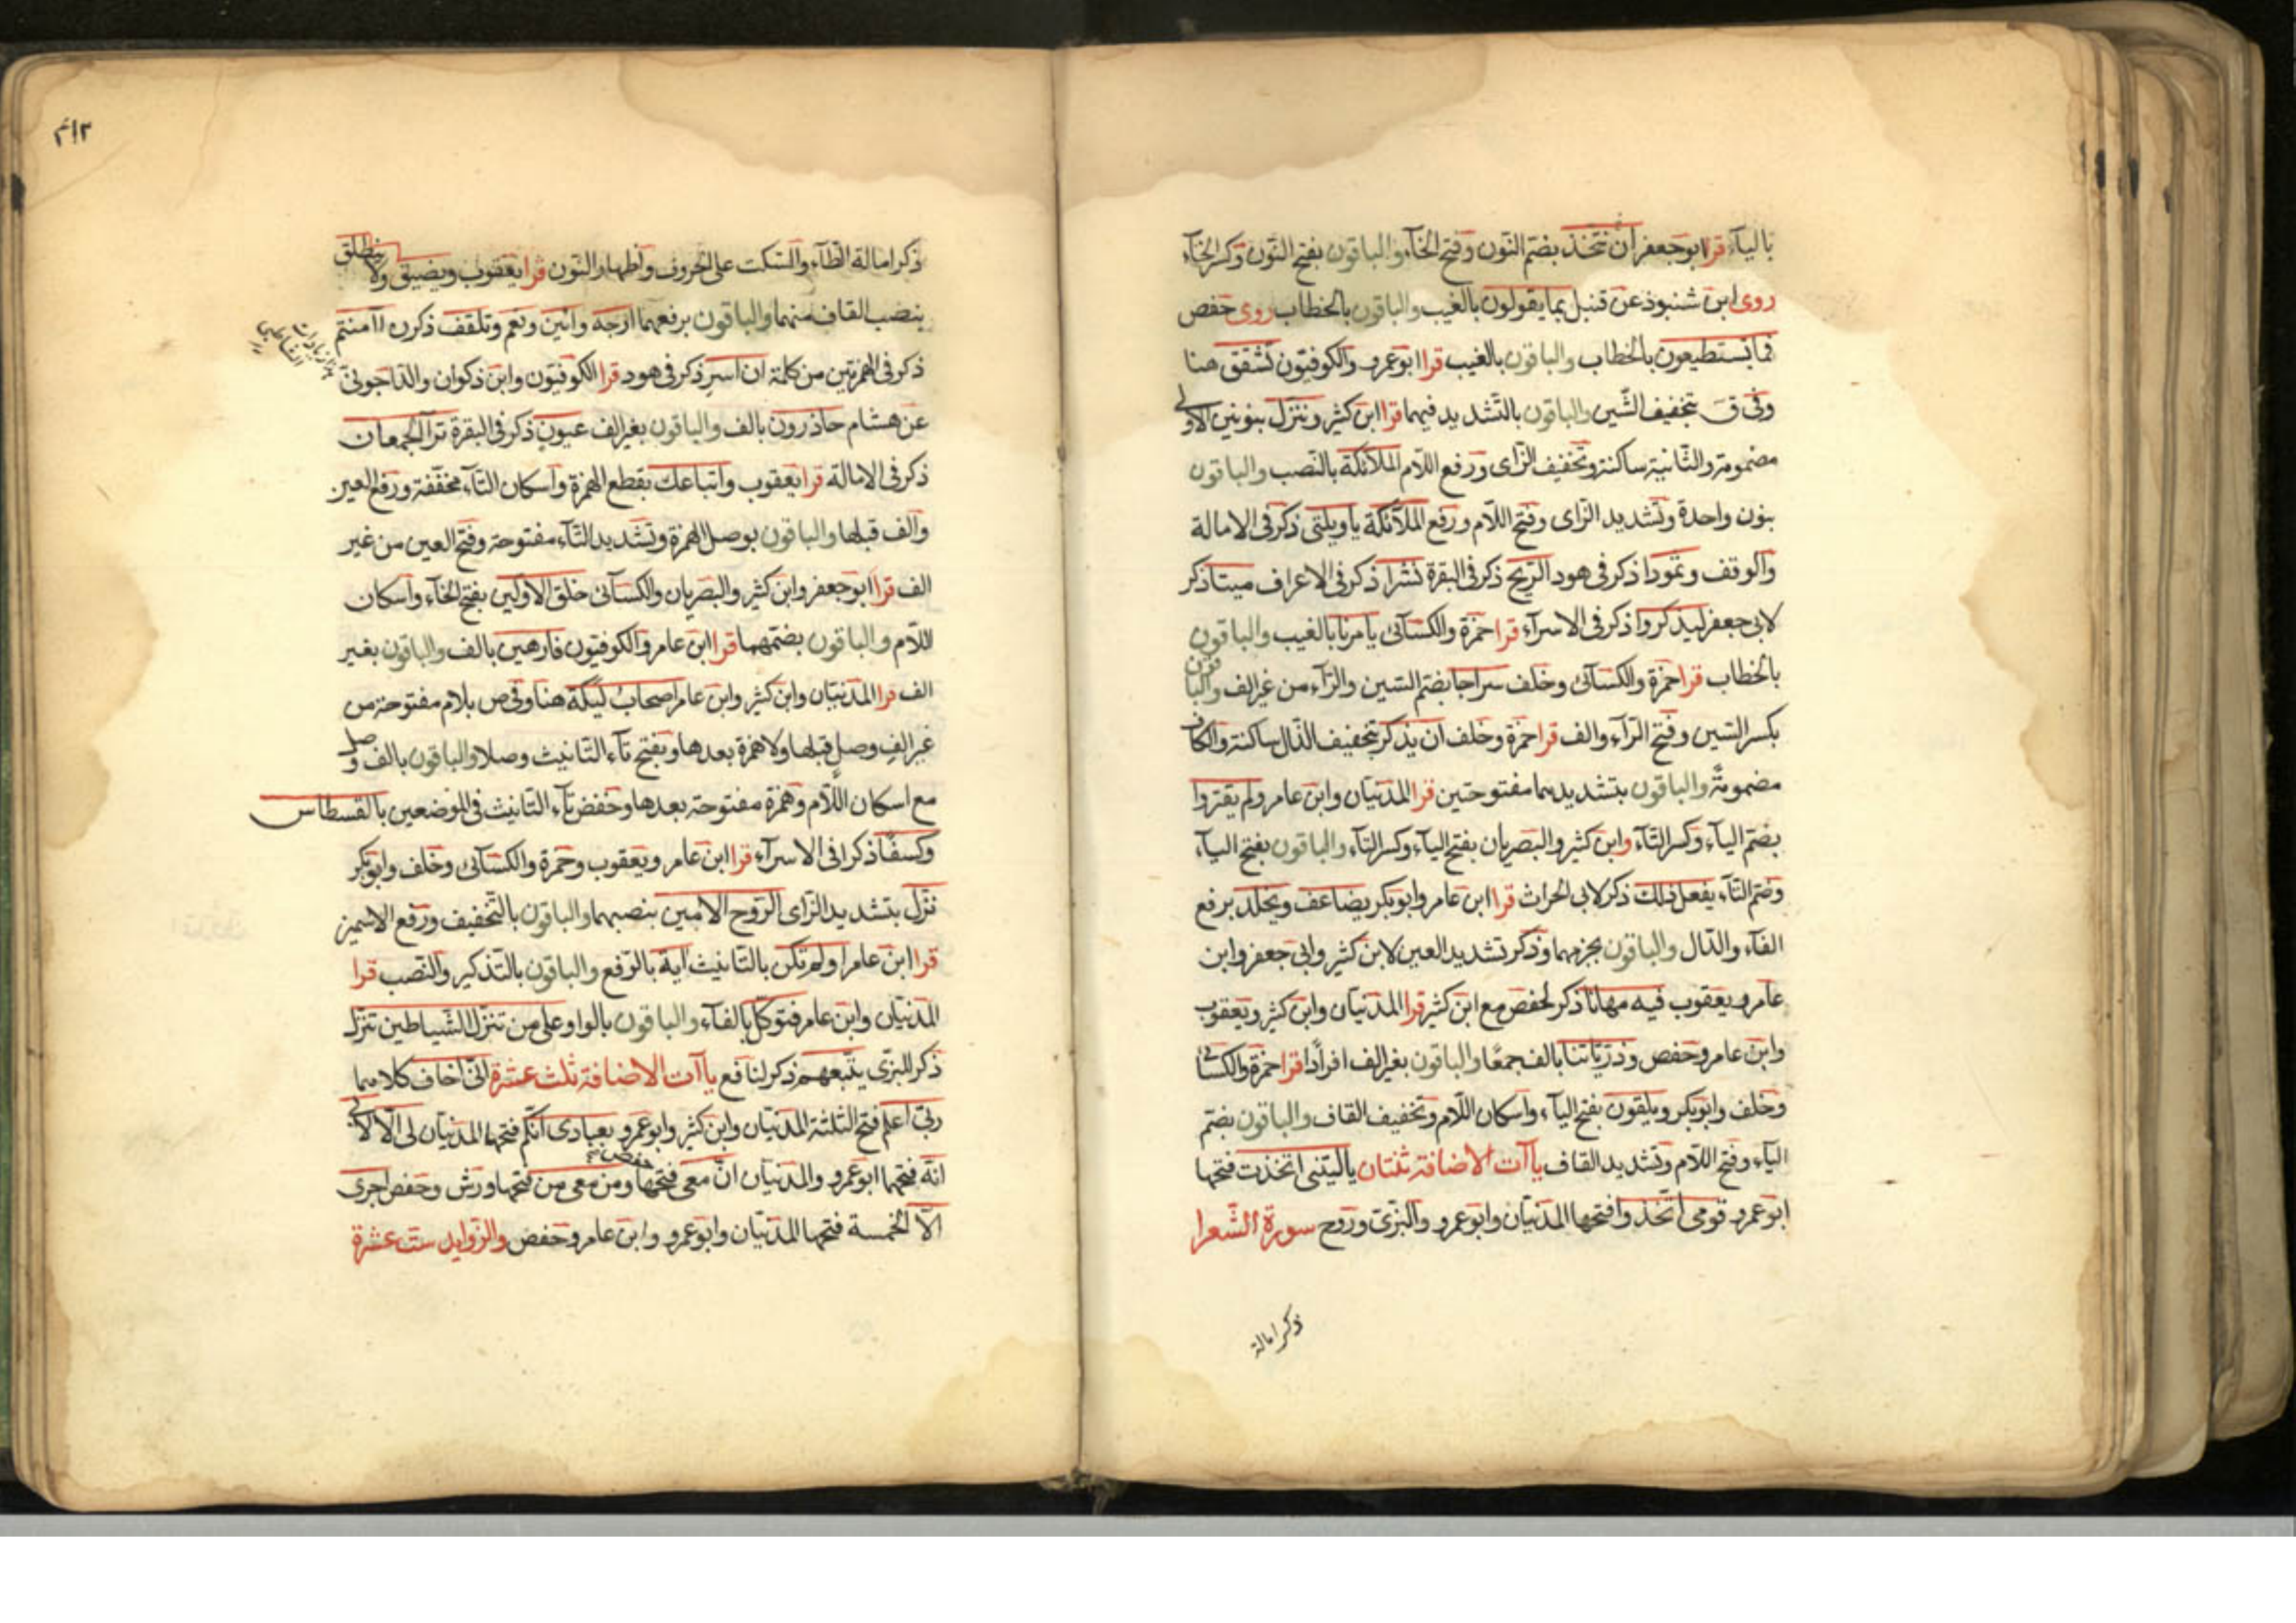 بالياء قرا ابوجعفر ان نتخذ بضم النون وفتح الخآء والباقون بفتح النون وكسر الخآء
روى ابن شنبوذ عن قنبل بما يقولون بالغيب والباقون بالخطاب روى حفص
فما تستطيعون بالخطاب والباقون بالغيب قرا ابوعمرو والكوفيون تشقق هنا
وفى ق بتخفيف الشين والباقون بالتشديد فيهما قرا ابن كثير وننزل بنونين الاولى
مضمومة والثانية ساكنة وتخفيف الزاى ورفع اللام الملائكة بالنصب والباقون
بنون واحدة وتشديد الزاى وفتح اللام ورفع الملائكة ياويلتى ذكر فى الامالة
والوقف وثمودا ذكر فى هود الريح ذكر فى البقرة نشرا ذكر فى الاعراف ميتا ذكر
لابى جعفر ليذكروا ذكر فى الاسرآء قرا حمزة والكسآئى يامرنا بالغيب والباقون
بالخطاب قرا حمزة والكسآئى وخلف سراجا بضم السين والرآء من غير الف والباقون
بكسر السين وفتح الرآء والف قرا حمزة وخلف ان يذكر بتخفيف الذال ساكنة والكاف
مضمومة والباقون بتشديدهما مفتوحتين قرا المدنيان وابن عامر ولم يقتروا
بضم اليآء وكسر التآء وابن كثير والبصريان بفتح اليآء وكسر التآء والباقون بفتح اليآء
وضم التآء يفعل ذلك ذكر لابى الحراث قرا ابن عامر وابوبكر يضاعف ويخلد برفع
الفآء والدال والباقون بجزمهما وذكر تشديد العين لابن كثير وابى جعفر وابن
عامر ويعقوب فيه مهانا ذكر لحفص مع ابن كثير قرا المدنيان وابن كثير ويعقوب
وابن عامر وحفص وذرياتنا بالف جمعا والباقون بغير الف افرادا قرا حمزة والكسائى
وخلف وابوبكر ويلقون بفتح اليآء واسكان اللام وتخفيف القاف والباقون بضم
اليآء وفتح اللام وتشديد القاف ياآت الاضافة ثنتان ياليتنى اتخذت فتحها
ابوعمرو قومى اتخذوا فتحها المدنيان وابوعمرو والبزى وروح سورة الشعرا
ذكر امالة
٣١٢
ذكر امالة الطآء والسكت على الحروف واظهار النون قرا يعقوب ويضيق ولا ينطلق
بنصب القاف منهما والباقون برفعهما ارجه وائين ونعم وتلقف ذكرن اآمنتم
ذكر فى الهمزتين من كلمة ان اسر ذكر فى هود قرا الكوفيون وابن ذكوان والداجونى
عن هشام حاذرون بالف والباقون بغير الف عيون ذكر فى البقرة ترآ الجمعان
ذكر فى الامالة قرا يعقوب واتباعك بقطع الهمزة واسكان التآء مخففة ورفع العين
والف قبلها والباقون بوصل الهمزة وتشديد التآء مفتوحة وفتح العين من غير
الف قرا ابوجعفر وابن كثير والبصريان والكسآئى خلق الاولين بفتح الخآء واسكان
اللام والباقون بضمهما قرا ابن عامر والكوفيون فارهين بالف والباقون بغير
الف قرا المدنيان وابن كثير وابن عامر اصحاب ليكة هنا وفى ص بلام مفتوحة من
غير الف وصل قبلها ولا همزة بعدها وبفتح تآء التانيث وصلا والباقون بالف وصل
مع اسكان اللام وهمزة مفتوحة بعدها وخفض تآء التانيث فى الموضعين بالقسطاس
وكسفا ذكرا فى الاسرآء قرا ابن عامر ويعقوب وحمزة والكسآئى وخلف وابوبكر
نزل بتشديد الزاى الروح الامين بنصبهما والباقون بالتخفيف ورفع الاسمين
قرا ابن عامر اولم تكن بالتانيث آية بالرفع والباقون بالتذكير والنصب قرا
المدنيان وابن عامر فتوكل بالفآء والباقون بالواو على من تنزل الشياطين تنزل
ذكر للبزى يتبعهم ذكر لنافع ياآت الاضافة ثلث عشرة انى اخاف كلاهما
ربى اعلم فتح الثلثة المدنيان وابن كثير وابوعمرو بعبادى انكم فتحها المدنيان لى الا
انه فتحها ابوعمرو والمدنيان ان معى فتحها حفص ومن معى من فتحها ورش وحفص اجرى
الا الخمسة فتحها المدنيان وابوعمرو وابن عامر وحفص والزوايد ست عشرة